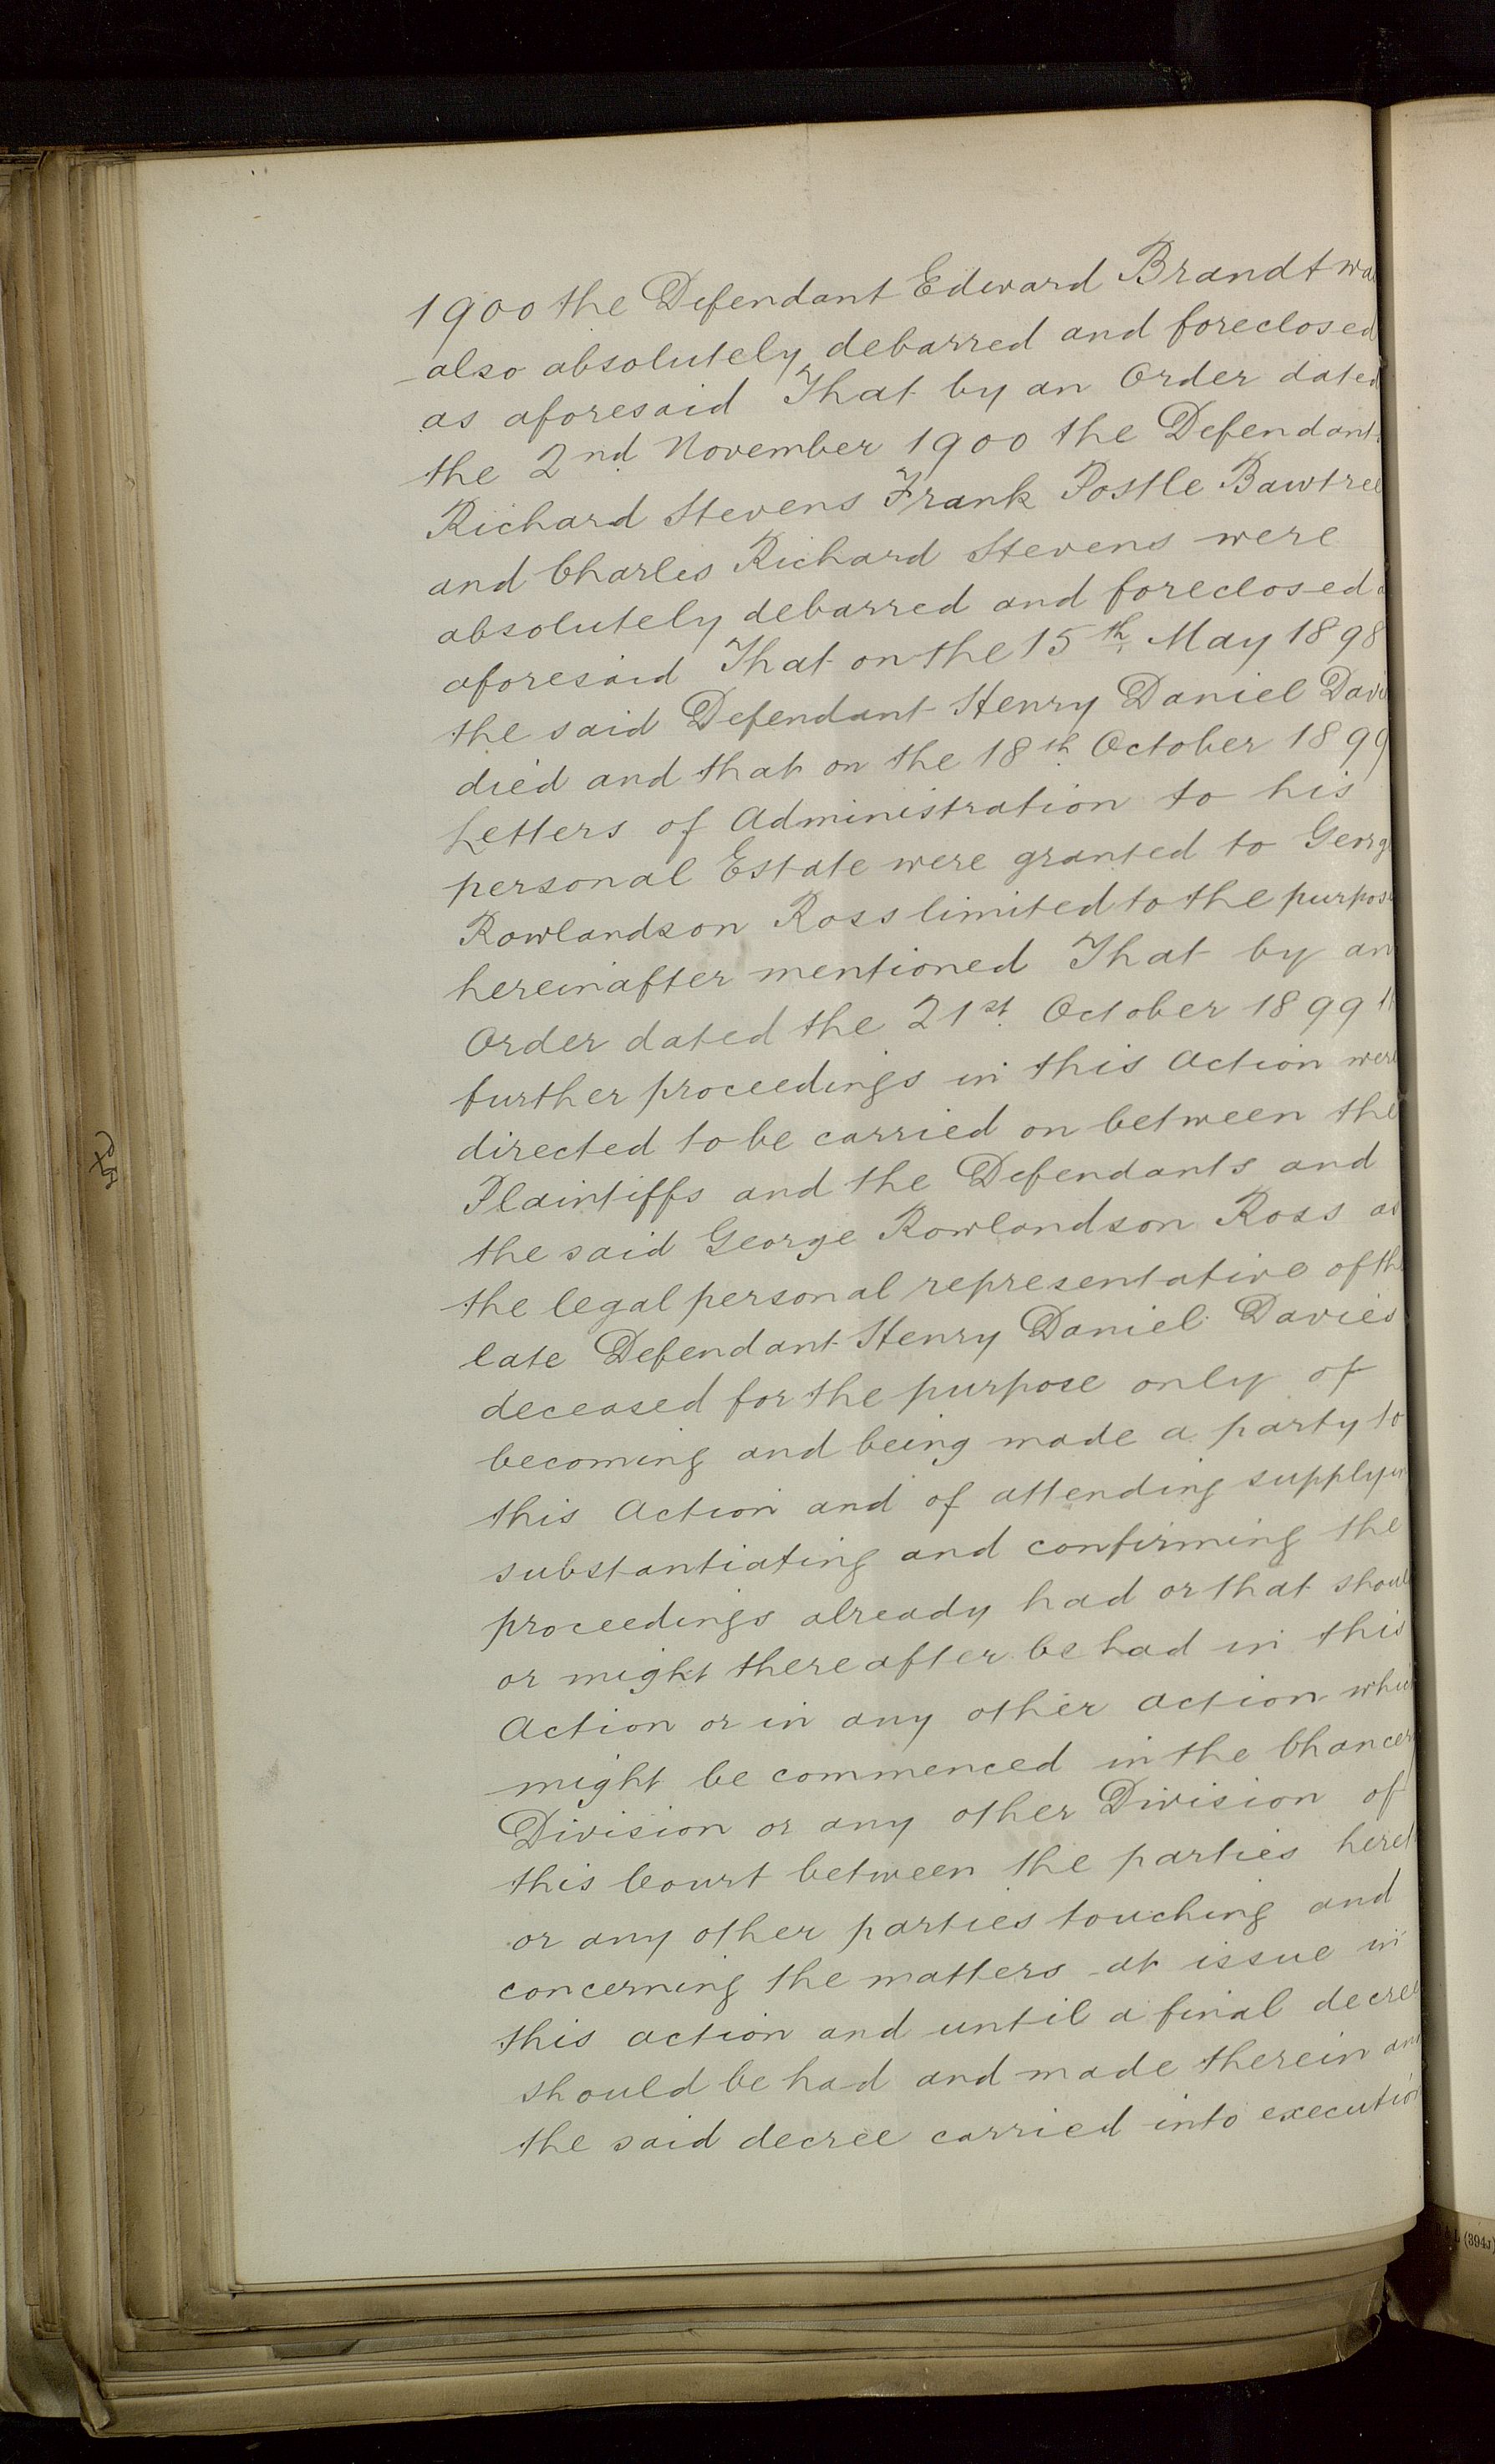 1900 the Defendant Edward Brandt wa
also absolutely debarred and foreclosed
as aforesaid That by an Order dated
the 2nd November 1900 the Defendant
Richard Stevens Frank Postle Bawtree
and Charles Richard Stevens were
absolutely debarred and foreclosed
aforesaid That on the 15th May 1898
the said Defendant Henry Daniel Davi
died and that on the 18th October 1899
Letters of Administration to his
personal Estate were granted to Georg
Rowlandson Ross limited to the purpos
hereinafter mentioned That by an
Order dated the 21st October 1899
further proceedings in this Action were
directed to be carried on between the
Plaintiffs and the Defendants and
the said George Rowlandson Ross as
the legal personal representative of the
late Defendant Henry Daniel Davies
deceased for the purpose only of
becoming and being made a party to
this Action and of attending supplyin
substantiating and confirming the
proceedings already had or that shoul
or might thereafter be had in this
Action or in any other action whic
might be commenced in the Chancer
Division or any other Division of
this Court between the parties heret
or any other parties touching and
concerning the matters at issue in
this action and until a final decree
should be had and made therein an
the said decree carried into execution
(394J)